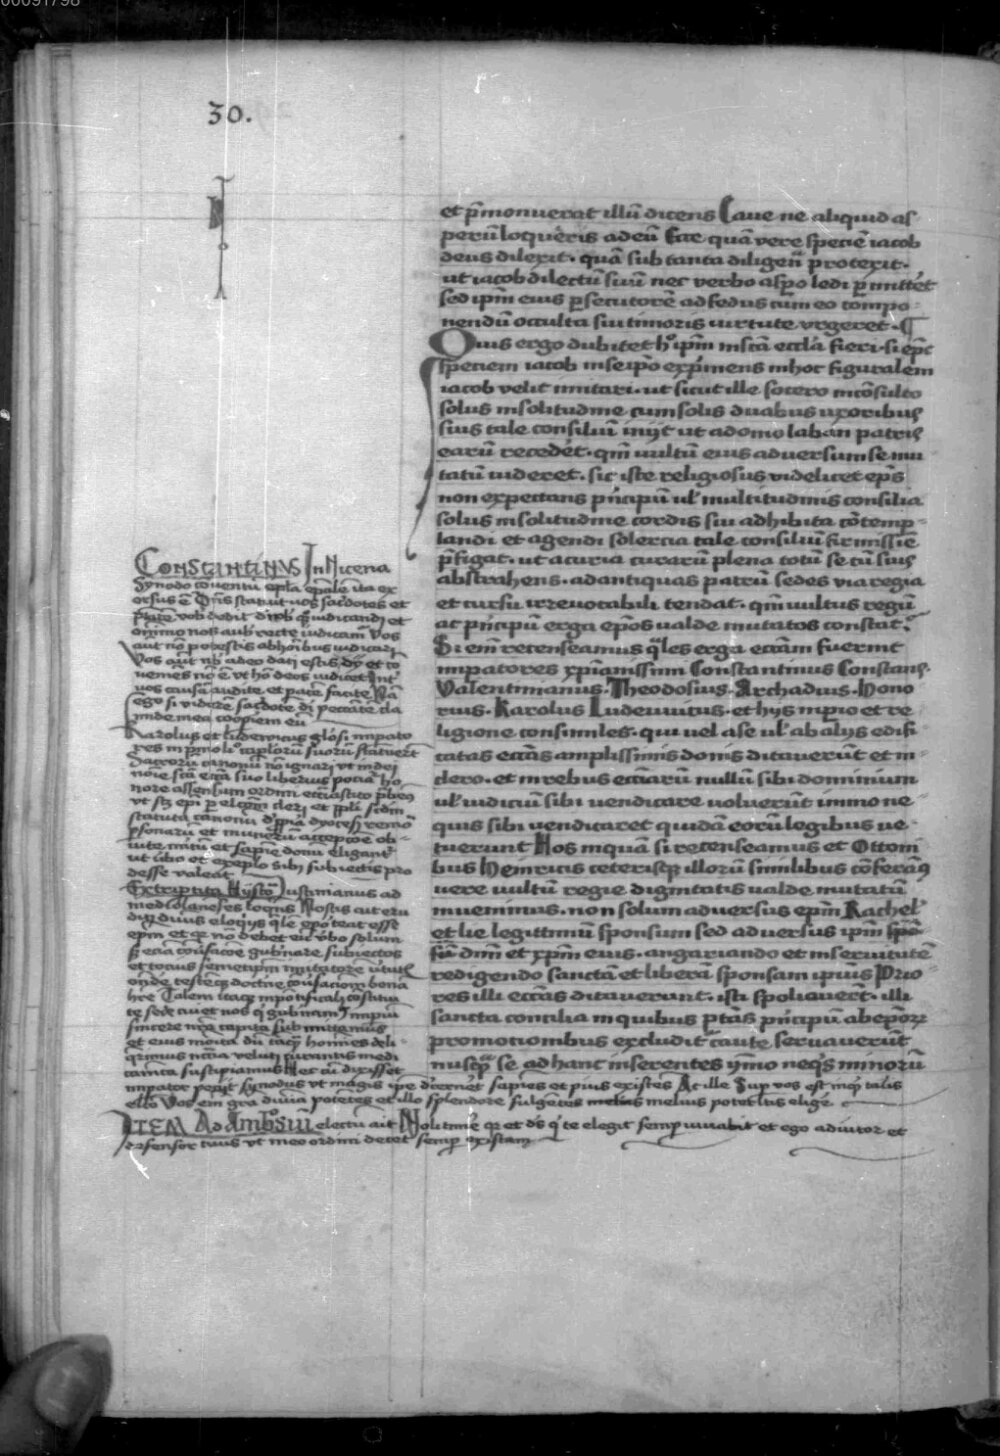 00091798
30.
et p̄monuerat illū dicens Caue ne aliquid as
perū loquèris adeū Ecce quā vere speciē iacob
deus dilexit. quā sub tanta diligen̄ protexit.
ut iacob dilectū suū nec verbo aspo ledi p̄mitt̄et
sed ipm̄ eius ꝑsecutorē ad fedus cum eo compo
nendū occulta sui timoris uirtute vrgeret. ¶
Quis ergo dubitet h° ipm̄ in sc̄ā eccl̄a fieri. si ep̄c
speciem iacob in seip̄o exp̄mens in hoc figuralem
iacob velit imitari. ut sicut ille socero incōsulto
solus in solitudine cum solis duabus uxoribus
suis tale consiliū iniit ut a domo laban patris
earū recedēt. qm̄ uultū eius aduersum se mu
tatū uideret. sic iste religiosus videlicet ep̄s
non expectans p̄ncipū ul' multitudinis consilia
solus in solitudine cordis sui adhibita cōtemp
landi et agendi solercia tale consiliū firmissiē
p̄figat. ut a curia curarū plena totū se cū suis
abstrahens. ad antiquas patrū sedes via regia
et cursu irreuocabili tendat. qm̄ uultus regū
ac p̄ncipū erga ep̄os ualde mutatos constat.
Si eni᷑ recenseamus q̄les erga ecc̄am fuerint
imperatores xp̄ianissimi Constantinus Constans.
Valentinianus. Theodosius. Archadius. Hono
rius. Karolus Ludewicus. et hijs in pio et re
ligione consimiles. qui uel a se ul' ab alijs edifi
catas ecc̄as amplissimis donis ditauerūt et in
clero. et in rebus ecc̄iarū nullū sibi dominium
ul' iudiciū sibi uendicare uoluerūt immo ne
quis sibi uendicaret quidā eorū legibus ue
tuerunt Hos inquā si recenseamus et Ottoni
bus Heinricis ceterisq; illorū similibus cōferam9
uere uultū regie dignitatis ualde mutatū
inueniimus. non solum aduersus ep̄m Rachel'
et lie legittimū sponsum sed aduersus ip̄m spō
sū dn̄m et xp̄m eius. angariando et in seruitutē
redigendo sanctā et liberā sponsam ipius Prio
res illi ecc̄as ditauerunt. isti spoliauer̄t. illi
sancta concilia in quibus p̄tās p̄ncipū ab ep̄oꝝ
promocionibus excludit̄ caute seruauerūt
nusq̄ se ad hanc inserentes ymo neq̄s minorū
CONSTANTINVS In Nicena
Synodo cōuentu epl̄a
orsus ē Ds statuit uos sac̄dotes et
p̄tatē vob dedit d' nob̄ q̄ iudicandi et
nos a uob recte iudicam̄ Vos
aut nō potestis ab hōibus iudicari
Vos aūt nob̄ a deo dati estis dij et cō
ueniens nō ē vt hō deos iudicet
uos causā audite et pacē facite Nā
ego si viderē sac̄dotē di peccātē cla
mide mea coopiem eū
Karolus et Ludewicus glōsi impato
res in p̄mo li° capl'orū suorū statuert
Sacrorū canonū nō ignari vt in dei
noīe sc̄a ecc̄a suo liberius pociat ho
nore assensum ordini ecc̄iastico p̄bem9
vt sc̄ꝫ ep̄i ꝑ elcc̄om cleri et ppl̄i scd̄m
statuta canonū d' ppria dyoces remo
ꝑsonarū et munerū accepcōe ob
uite meritū et sapie donū eligant̄
ut ūbo et exeplo sibi subiectis pro
desse valeāt
Ex triptita Hystoria Justinianus ad
mediolaneses loq̄ns Nostis ait
diuis eloqijs q̄le ep̄o teat esse
ep̄m et q̄ nō debet eū vbo solum
sꝫ ecia cōūsacōe gub'nare subiectos
et tocius semetip̄m imitatorē
onde testēq; doctrine cōūsaciom bona
hre Talem itaq; in pontificali cōstitui
te sede cui et nos q̄ gub'nam9 impiū
sincere nr̄a capita submittem9
et eius monita
qrimus velut curantis medi
camīa suscipiamus Hec cū dixisset
imp̄ator petijt synodus vt magis ip̄e decernēt sapies et pius existēs At ille Sup vos est inqt talis
ellō Vos em̄ gra diuia potētes et illo splendore fulgētes melius poteritis elige
ITEM Ad Ambrosiū electū ait Noli time q̄ et d's q̄ te elegit semp iuuabit et ego adiutor et
defensor tuus vt meo ordini decet semp existam